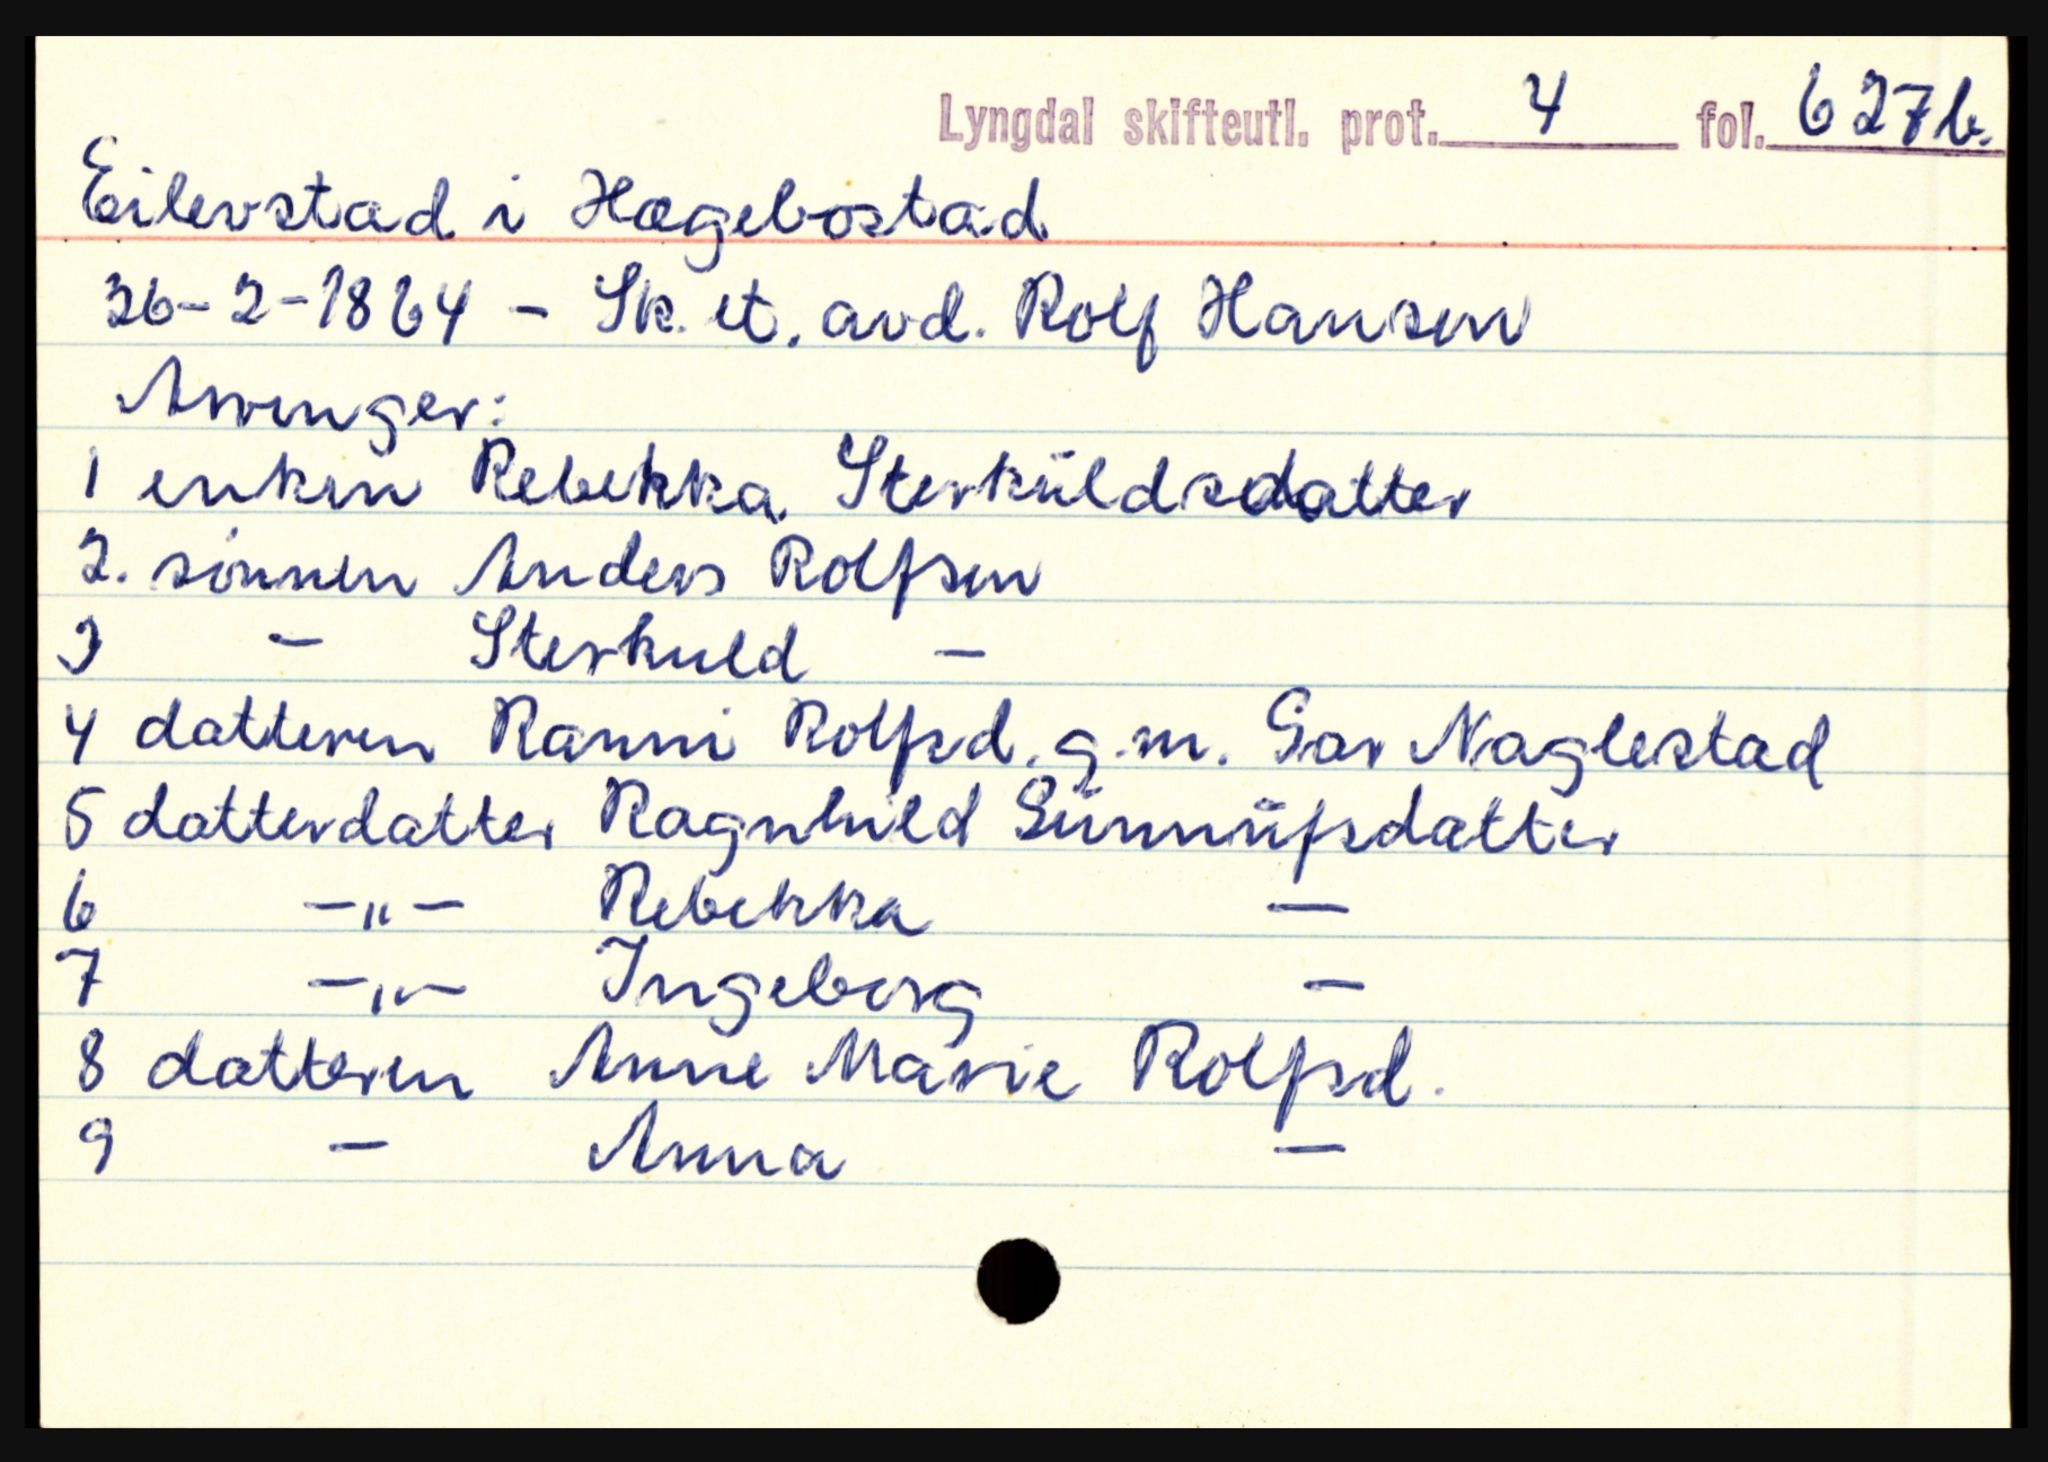 Lyngdal skifteutl. prot. 4 fol. 627b.
Eilevstad i Hægebostad
26-2-1864 - Sk. et. avd. Rolf Hansen
Arvinger:
1 enken Rebekka Sterkùldsdatter
2. sönnen Anders Rolfsen
3 - Sterkuld -
4 datteren Ranni Rolfsd. g.m. Gar Naglestad
5 datterdatter Ragnhild Sùnnùfsdatter
6 -"- Rebekka -
7 -"- Ingeborg -
8 datteren Anne Marie Rolfsd.
9 - Anna -